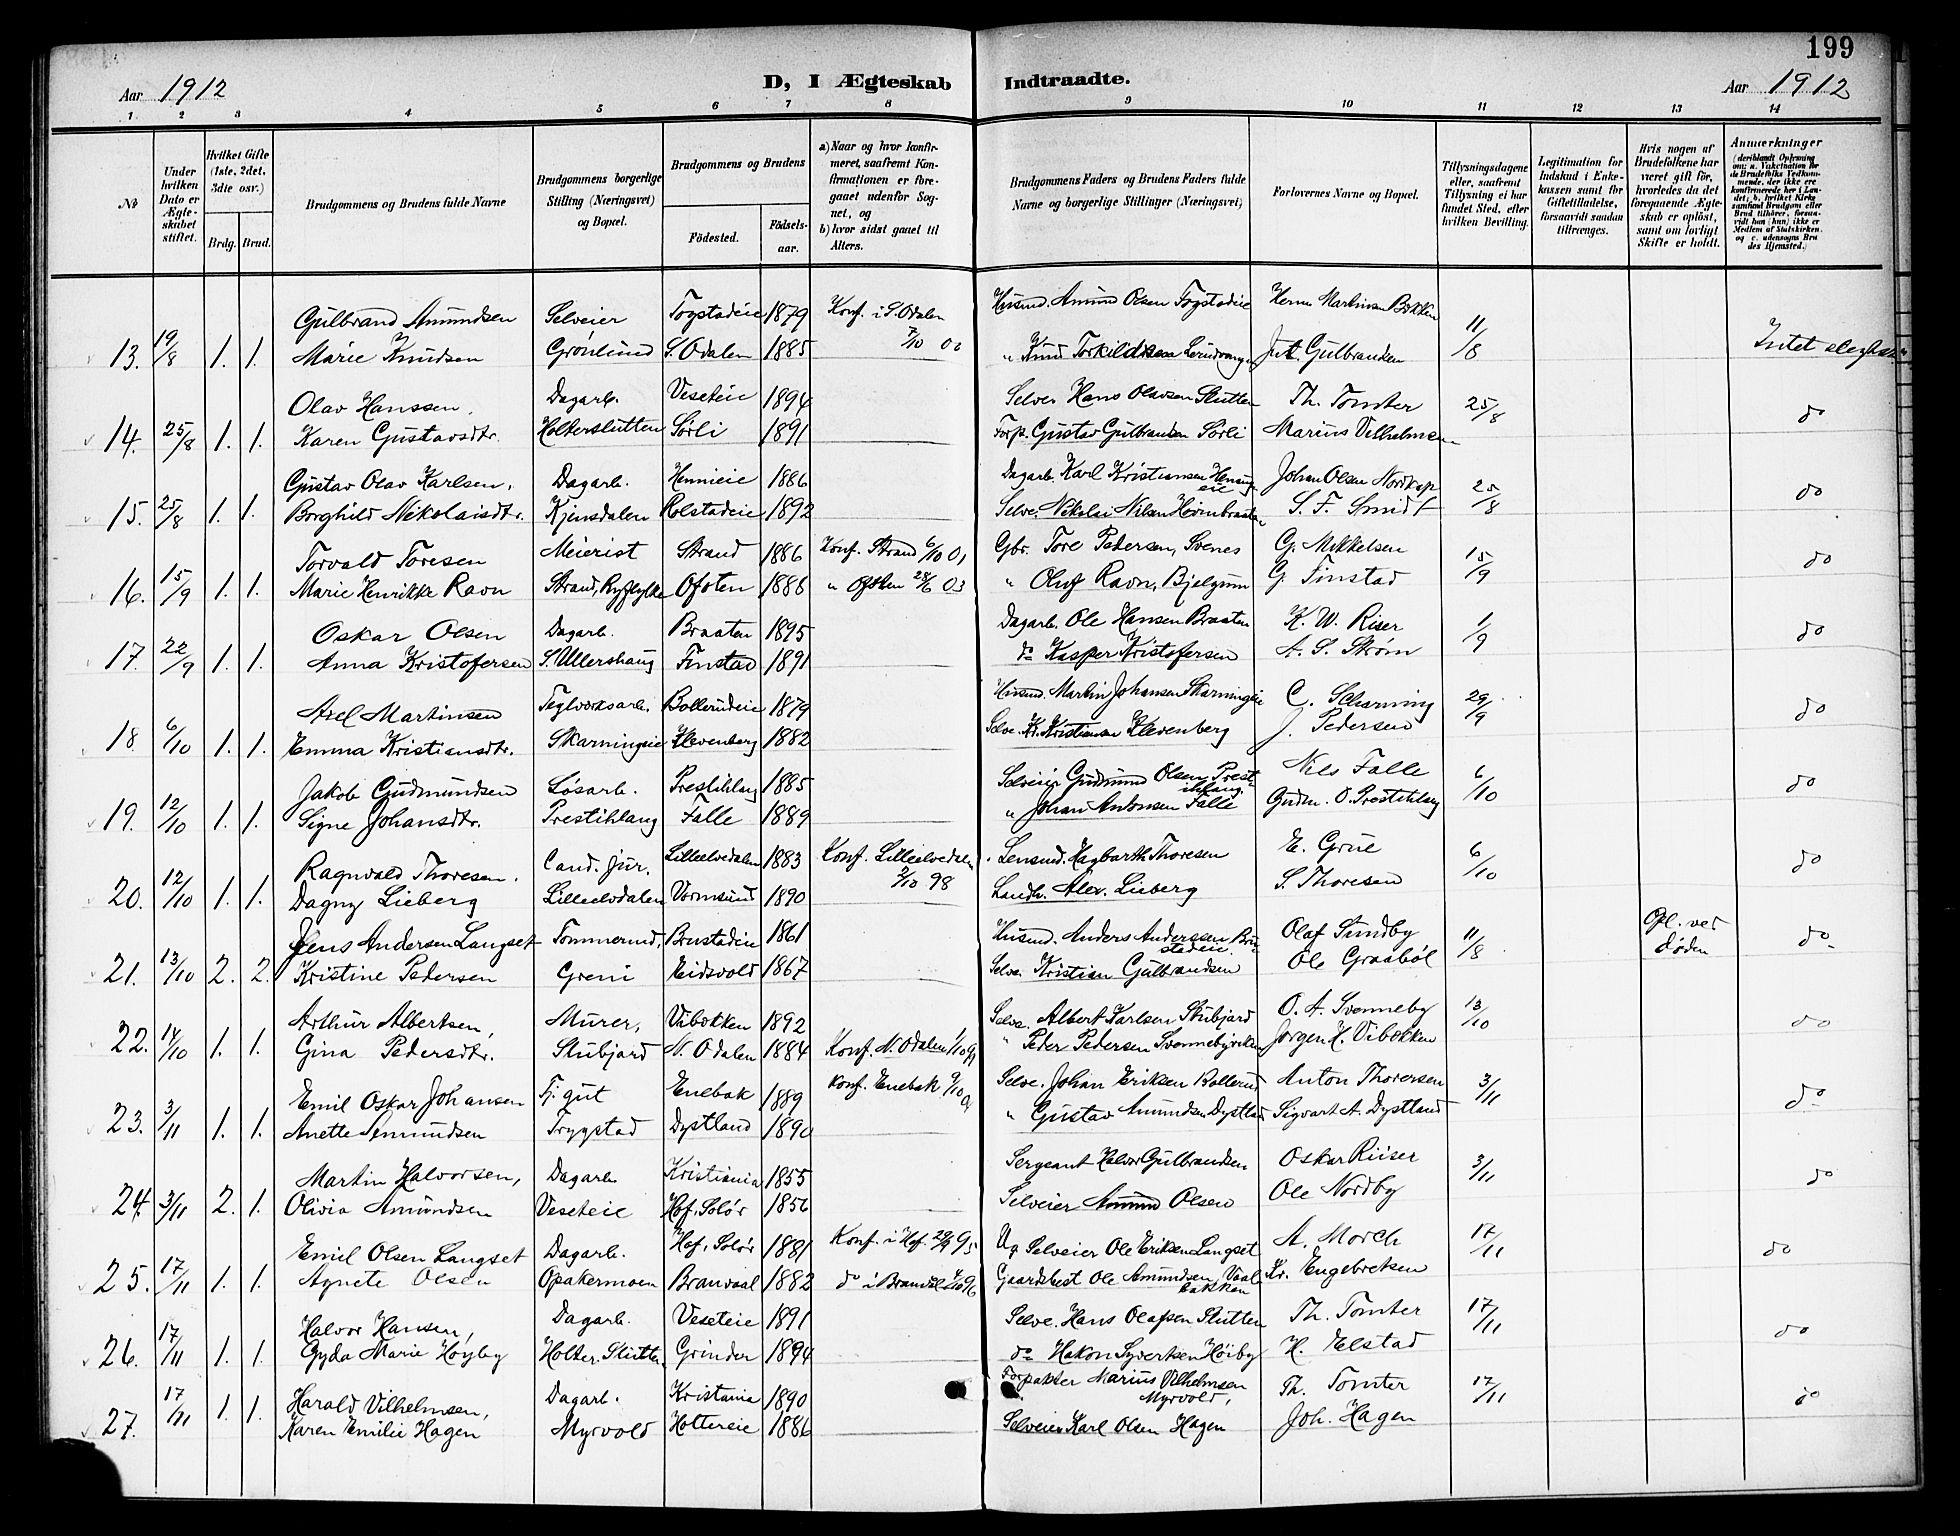 199
Aar 1912
D, I Ægteskab Indtraadte.
Aar 1912
1 2 3 4 5 6 7 8 9 10 11 12 13 14
No
Under hvilken Dato er Ægteskabet stiftet.
Hvilket Gifte (1ste, 2det, 3die osv.)
Brdg. Brud.
Brudgommens og Brudens fulde Navne
Brudgommens borgerlige Stilling (Næringsvei) og Bopæl.
Brudgommens og Brudens
Fødested.
Fødselsaar.
a) Naar og hvor konfirmeret, saafremt Konfirmationen er foregaaet udenfor Sognet, og
b) hvor sidst gaaet til Alters.
Brudgommens Faders og Brudens Faders fulde Navne og borgerlige Stillinger (Næringsvei)
Forlovernes Navne og Bopæl.
Tillysningsdagene eller, saafremt Tillysning ei har fundet Sted, efter hvilken Bevilling.
Legitimation for Indskud i Enkekassen samt for Giftetilladelse, forsaavidt saadan tiltrænges.
Hvis nogen af Brudefolkene har været gift før, hvorledes da det foregaaende Ægteskab er opløst, samt om lovligt Skifte er holdt.
Anmærkninger
(deriblandt Oplysning om: a. Vakcination for de Brudefolks Vedkommende, der ikke ere konfirmerede her i Landet; b. hvilket Kirkesamfund Brudgom eller Brud tilhører, forsaavidt han (hun) ikke er Medlem af Statskirken, og c. udensogns Brudes Hjemsted.)
Gulbrand Amundsen Selveier Togstadeie 1879 Konf. i S. Odalen Husmd. Amund Olsen Togstadeie Herm Martinsen Bækken
13. 19/8 1. 1. Marie Knudsen Grønlund S. Odalen 1885 7/10 00 " Knud Torkildsen Gulbrandsen 11/8 Intet
Olav Hanssen, Dagarb. Veseteie 1894 Selvei Hans Olavsen Slutten Th. Tomter
14. 25/8 1. 1. Karen Gustavsdtr. Holterslutten Sørli 1891 Forp. Gustav Gulbrandsen Sørli Marius Vilhelmsen 25/8 do
Gustav Olav Karlsen, Dagarb. Hennieie 1886 Dagarb. Karl Kristiansen Johan Olsen Nordkap
15. 25/8 1. 1. Borghild Nikolaisdtr. Kjensdalen Rolstadeie 1892 Selve. Nikolai Nilsen Høienbraaten S. F. Smidt 25/8 do
Torvald Toresen Meierist Strand 1886 Konf. Strand 6/10 01 Gbr. Tore Pedersen, Svenes G. Mikkelsen
16. 15/9 1. 1. Marie Henrikke Ravn Strand, Ryfylke Ofoten 1888 " Ofoten 28/6 03 " Oluf Ravn, Bjelgum G. Finstad 15/9 do
Oskar Olsen Dagarb. Braaten 1895 Dagarb. Ole Hansen Braaten K. W. Riser
17. 22/9 1. 1. Anna Kristofersen S. Ullershaug Finstad 1891 do Kasper Kristofersen A. S. Strøm 1/9 do
Axel Martinsen Teglverksarb. Bollerudeie 1879 Husmd. Martin Johansen Skarningeie C. Scharning
18 6/10 1. 1. Emma Kristiansdtr. Skarningseie Klevenberg 1882 Selve. Kr. Kristiansen Klevenberg J. Pedersen 29/9 do
Jakob Gudmundsen Løsarb. Prestihlang 1885 Selveier Gudmund Olsen Prestihlang Nils Falle
19. 12/10 1. 1. Signe Johansdtr. Prestihlang Falle 1889 " Johan Antonsen Falle Gudm. O. Prestihlang 6/10 do
Ragnvald Thoresen. Cand. jur. Lilleelvedalen 1883 Konf. Lilleelvedalen Lensmd. Hagbarth Thoresen E. Grue
20. 12/10 1. 1. Dagny Lieberg Lilleelvdalen Vormsund 1890 2/10 98 Landh. Alex. Lieberg S. Thoresen 6/10 do
Jens Andersen Langset Tømmermd, Brustadeie 1861 Husmd. Anders Anderssen Brustadeie Olaf Sundby Opl. ved døden
21. 13/10 2. 2. Kristine Pedersen Greni Eidsvold 1867 Selve. Kristian Gulbrandsen Ole Graabøl 11/8 do
Arthur Albertsen, Murer, Vibækken 1892 Selve. Albert Karlsen Stubjard O. A. Svenneby
22. 14/10 1. 1. Gina Pedersdtr. Stubjard N. Odalen 1884 Konf. N. Odalen 1/10 99 " Peder Pedersen Svennebyviken Jørgen H. Vibækken 13/10 do
Emil Oskar Johansen Tj. gut Enebak 1889 Konf. Enebak 9/10 Selve. Johan Eriksen Bollerud Anton Thoresen
23. 3/11 1. 1. Anette Amundsen Trygstad Dystland 1890 " Gustav Amundsen Dystland Sigvart A. Dystland 3/11 do
Martin Halvorsen, Dagarb. Kristiania 1855 Sergeant Halvor Gulbrandsen Oskar Riiser
24. 3/11 2. 1. Olivia Amundsen Veseteie Hof, Solør 1856 Selveier Amund Olsen Ole Nordby 3/11 do
Emil Olsen Langset Dagarb. Hof, Solør 1881 Konf. i Hof. 29/9 95 Ug. Selveier Ole Eriksen Langset A. Morch
25. 17/11 1. 1. Agnete Olsen Opakermoen Branvaal 1882 do i Branval 4/10 96 Gaardbest Ole Amundsen, Vaalbakken Kr. Engebretsen 17/11 do
Halvor Hansen, Dagarb. Veseteie 1891 Selve. Hans Olafsen Slutten Th. Tomter
26. 17/11 1. 1. Gyda Marie Høyby Holter. Slutten Grinder 1894 do Hakon Syvertsen Høiby H. Elstad 17/11 do
Harald Vilhelmsen, Dagarb. Kristania 1890 Forpakter Marius Vilhelmsen Myrvold, Th. Tomter
27. 17/11 1. 1. Karen Emilie Hagen Myrvold Holtereie 1886 Selveier Karl Olsen Hagen Joh. Hagen 17/11 do